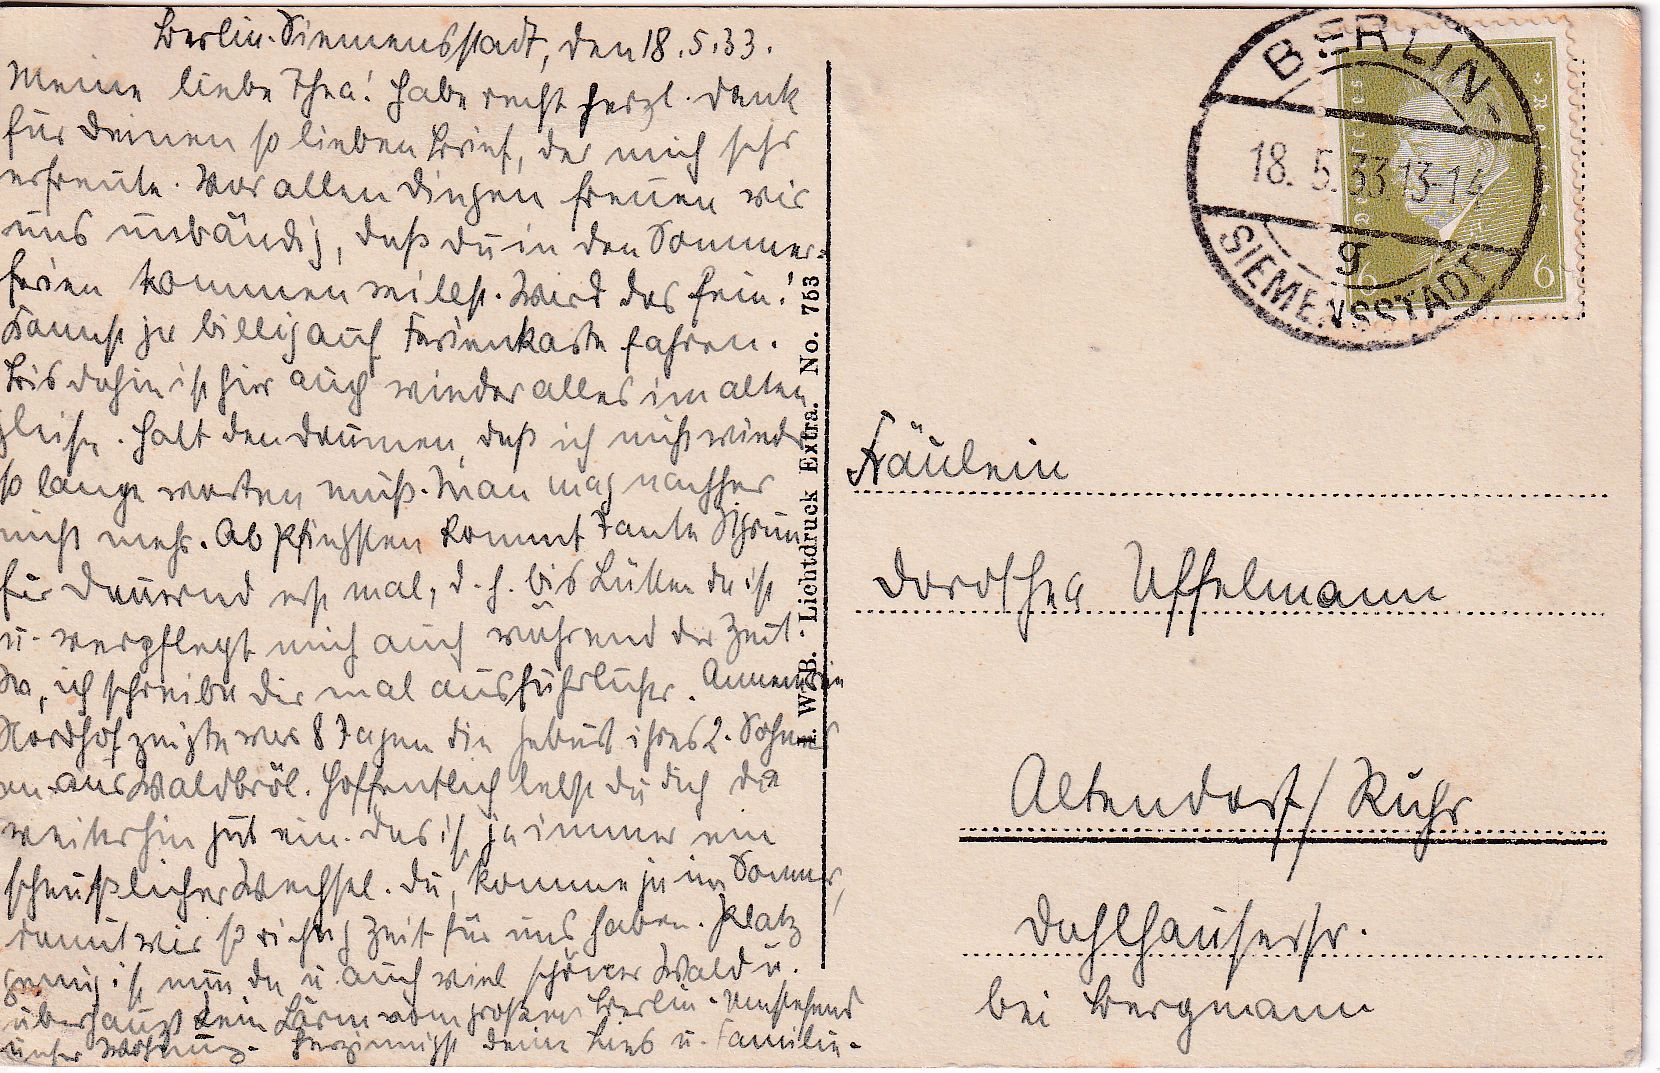 Berlin-Siemensstadt, den 18.5.33.
Meine liebe Thea! Habe recht herzl. Dank
für Deinen so lieben Brief, der mich sehr
erfreute. Vor allen Dingen freuen wir
uns unbändig, daß Du in den Sommer-
ferien kommen willst. Wird das fein!
Kannst ja billig auf Ferienkarte fahren.
Bis dahin ist hier auch wieder alles im alten
Gleise. Halt den Daumen, daß ich nicht wieder
so lange warten muß. Man mag nachher
nicht mehr. Ab Pfingsten kommt Tante
für Dauernd erst mal, d. h. bis Lütten da ist
u. verpflegt mich auch während der Zeit.
Na, ich schreibe dir mal ausführlicher. Annemarie
Nordhof zeigte vor 8 Tagen die Geburt ihres 2. Sohnes
an aus Waldbröl. Hoffentlich lebst Du Dich da
weiterhin gut ein. Das ist ja immer ein
scheußlicher Wechsel. Du, komme ja im Sommer,
damit wir so richtig Zeit für uns haben. Platz
genug ist nun da u. auch viel schöner Wald u.
überhaupt kein Lärm vom grossen Berlin. Umstehend
unsere Wohnung. Herzinnigst Deine Lies u. Familie.
I. W. B. Lichtdruck Extra. No. 753
BERLIN-
18.5.33.13-14
g
SIEMENSSTADT
6 6
Fräulein
Dorothea Uffelmann
Altendorf/Ruhr
Dahlhauserstr.
bei Bergmann